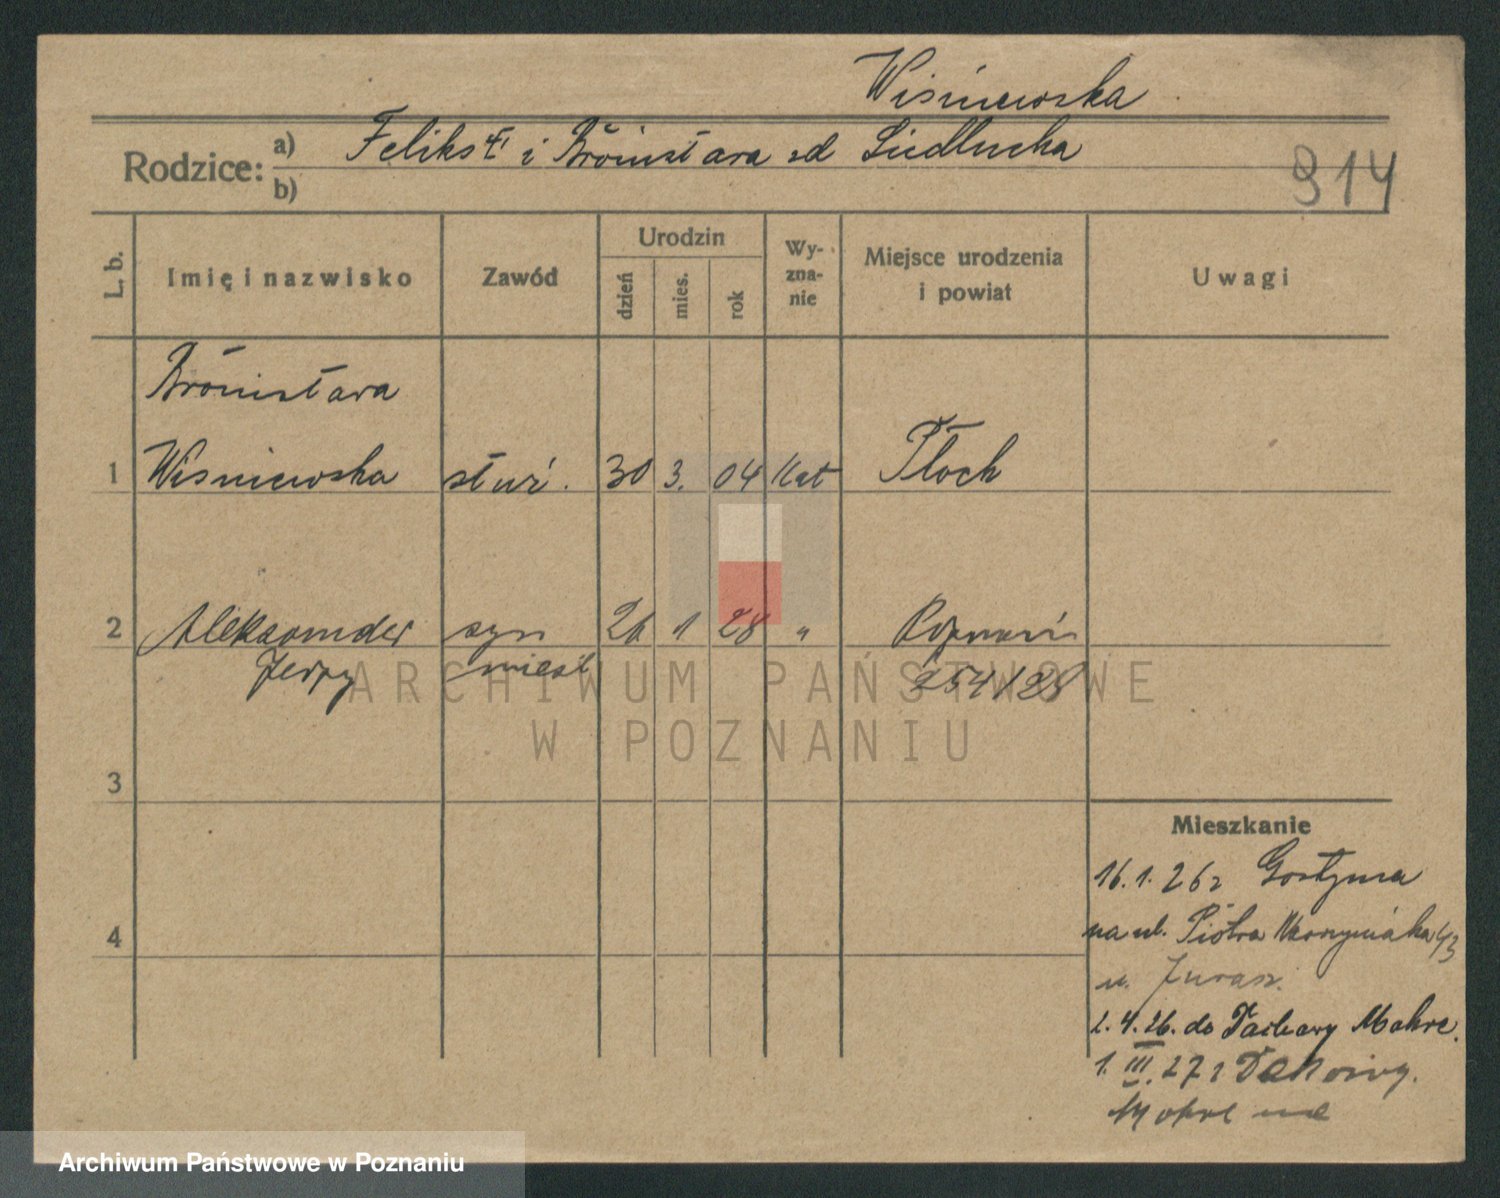 Wiśniewska
Rodzice: a) Feliks i Bronisława zd Siedlecka
b)
914
L. b.
Imię i nazwisko
Zawód
Urodzin
dzień
mies.
rok
Wy-
zna-
nie
Miejsce urodzenia
i powiat
Uwagi
Bronisława
1 Wiśniewska służ. 30 3. 04 Kat Płock
2 Aleksander syn 26 1 28 " Poznań
Jerzy nieśl 254/28
3
4
Mieszkanie
16.1.26 z Gostynia
na ul. Piotra Wawrzyniaka 43
u. Jurasz.
2.4.26. do Mokre.
1. III. 27 z
Mokre
ARCHIWUM PAŃSTWOWE
W POZNANIU
Archiwum Państwowe w Poznaniu